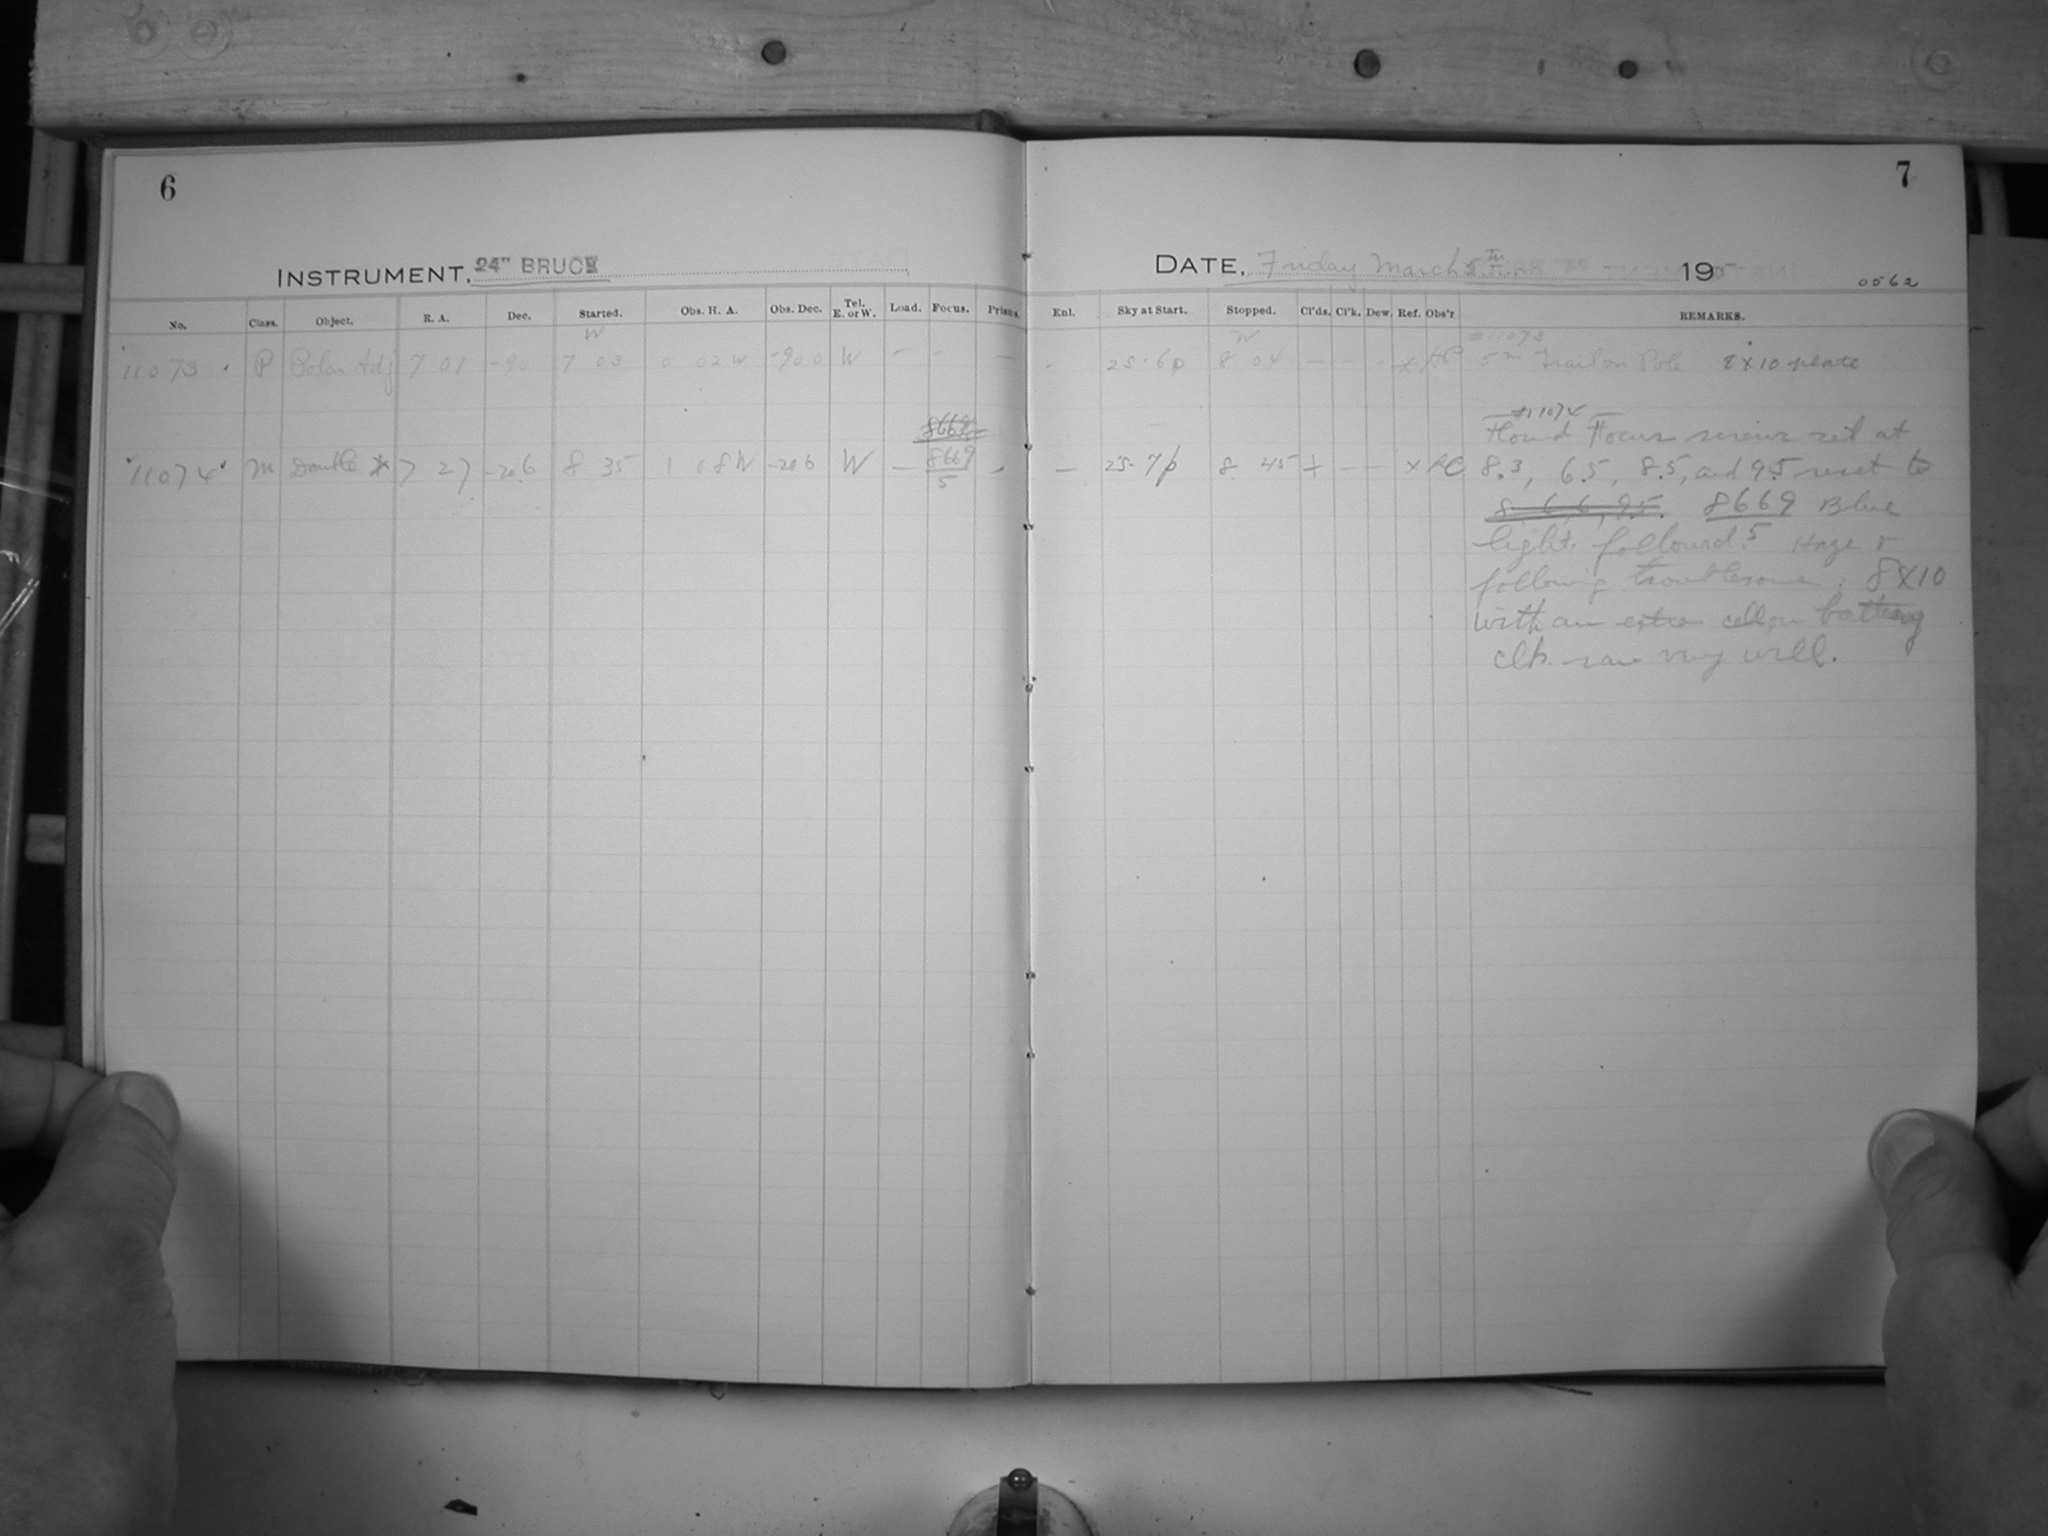 6
INSTRUMENT. 24" BRUCE
No. Class. Object. R. A. Dec. Started. Obs. H. A. Obs. Dec. Tel. E. or W. Load. Focus. Prism.
W
11073 P Polar Adj 7 01 -90 7 03 0 02 W -90 0 W - - -
11074 M Double * 7 27 -20.6 8 35 1 08 W -20 6 W - 8669 -
5
7
DATE. Friday March 5th 19
0562
Enl. Sky at Start. Stopped. Cl'ds. Cl'k. Dew. Ref. Obs'r REMARKS.
W #11073
- 25-6p 8 04 - - - x 5m Trail on Pole 8x10 plate
#11074
Found Focus screws set at
- 25-7p 8 45 + - - x 8.3, 6.5, 8.5, and 9.5 reset to
8669 Blue
light. followed. 5 Haze &
following troublesome. 8X10
With an extra cell on battery
clk. ran very well.